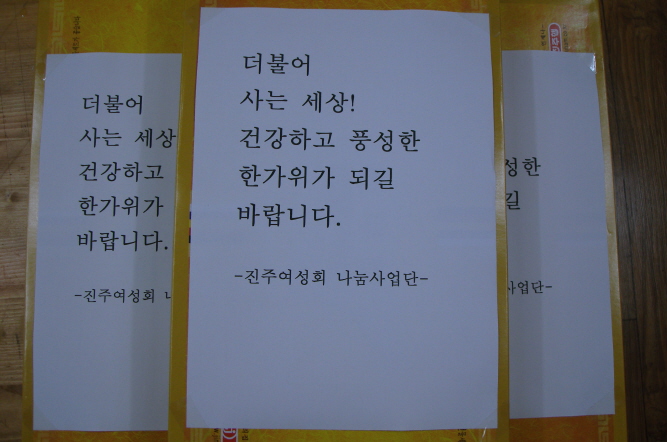 더불어
사는 세상!
건강하고 풍성한
한가위가 되길
바랍니다.
-진주여성회 나눔사업단-
더불어
사는 세상
건강하고
한가위가
바랍니다.
-진주여성회
성한
길
사업단-